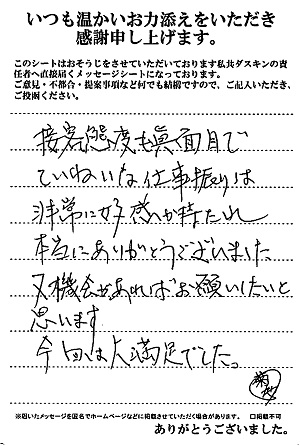 いつも温かいお力添えをいただき
感謝申し上げます。
このシートはおそうじをさせていただいております私共ダスキンの責
任者へ直接届くメッセージシートになっております。
ご意見・不都合・提案事項など何でも結構ですので、ご記入いただき、
ご投函ください。
接客態度も真面目で
ていねいな仕事振りは
非常に好感が持たれ
本当にありがとうございました
又機会があればお願いしたいと
思います
今回は大満足でした。
※頂いたメッセージを匿名でホームページなどに掲載させていただく場合があります。 □掲載不可
ありがとうございました。